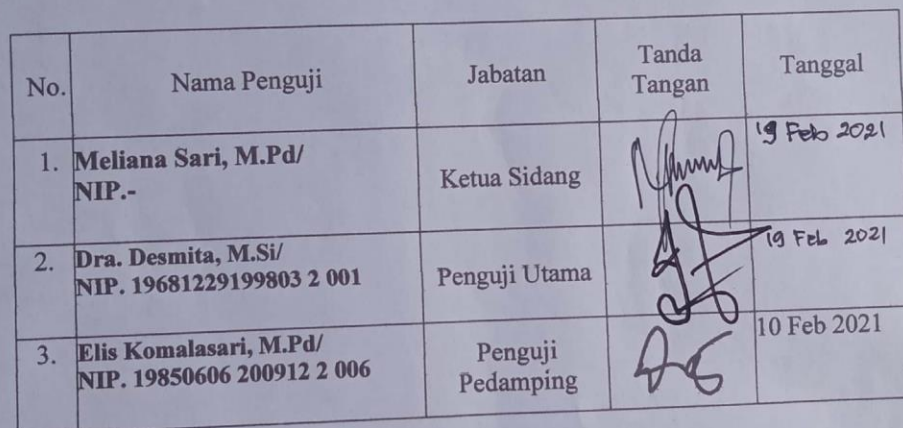 No. Nama Penguji Jabatan Tanda Tangan Tanggal
1. Meliana Sari, M.Pd/
NIP.-
Ketua Sidang
19 Feb 2021
2. Dra. Desmita, M.Si/
NIP. 19681229199803 2 001
Penguji Utama
19 Feb 2021
3. Elis Komalasari, M.Pd/
NIP. 19850606 200912 2 006
Penguji
Pedamping
10 Feb 2021